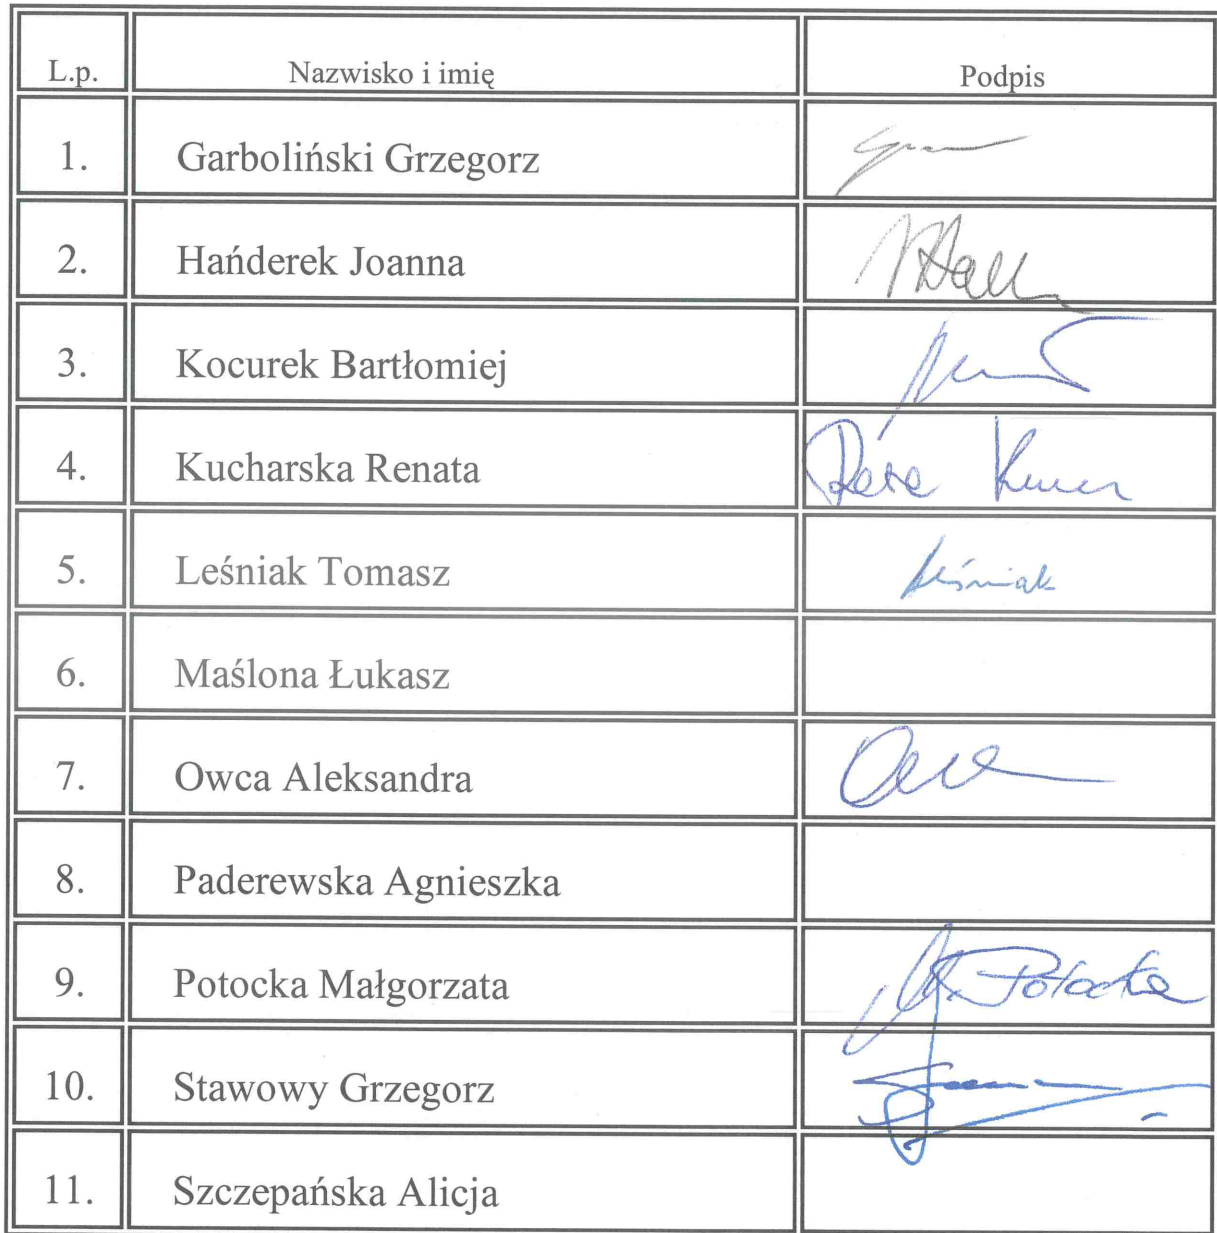 L.p. Nazwisko i imię Podpis
1. Garboliński Grzegorz
2. Hańderek Joanna
3. Kocurek Bartłomiej
4. Kucharska Renata
5. Leśniak Tomasz Leśniak
6. Maślona Łukasz
7. Owca Aleksandra
8. Paderewska Agnieszka
9. Potocka Małgorzata M. Potocka
10. Stawowy Grzegorz
11. Szczepańska Alicja